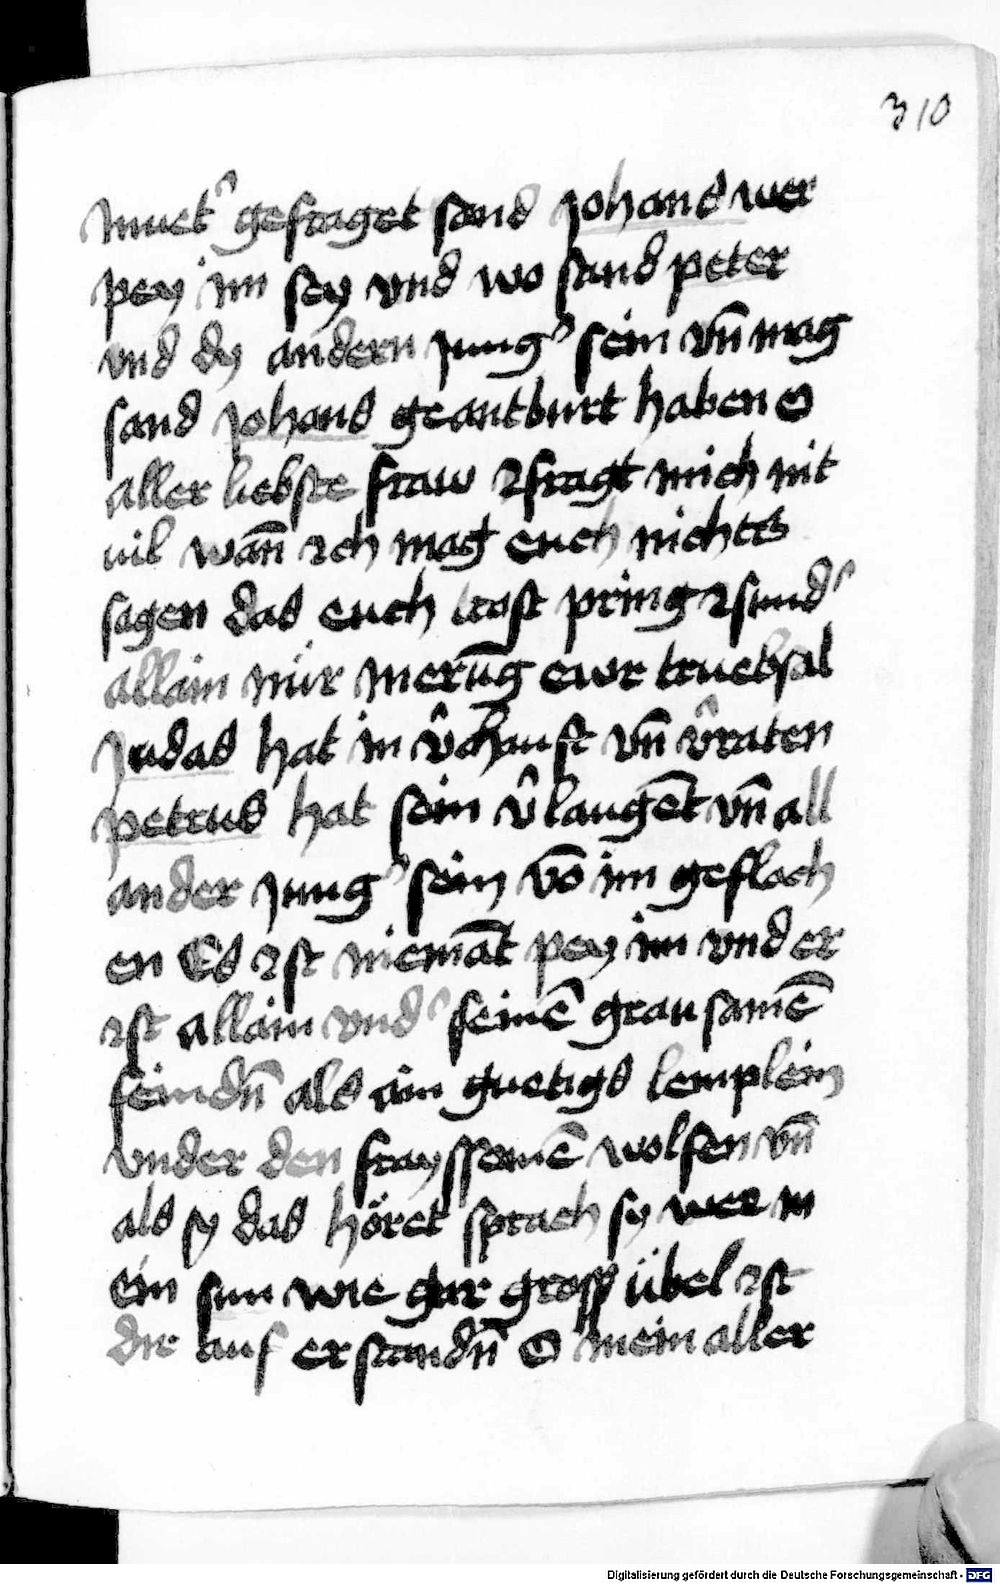 310
muetˀ gefraget sand johans wer
pey im sey vnd wo sand peter
vnd dy andern jungˀ sein vn̄ mag
sand johans geantburt haben O
aller liebste fraw Ir fragt mich nit
vil wan̄ ich mag euch nichts
sagen das euch trost pring sundˀ
allain nür merūg ewr truebsal
Judas hat in v̂chauft vn̄ v̂raten
petrus hat sein v̂laugēt vn̄ all
ander jungˀ sein vō im gefloch
en Es ist niemāt pey im vnd er
ist allain vndˀ seinē grausamē
feindn̄ als ain guetigs lemplein
vnder den frayssamē wolfen vn̄
als sy das höret sprach sy wee m
ein sun wie gar gross übel ist
dir auf erstandn̄ O mein aller
Digitalisierung gefördert durch die Deutsche Forschungsgemeinschaft - DFG